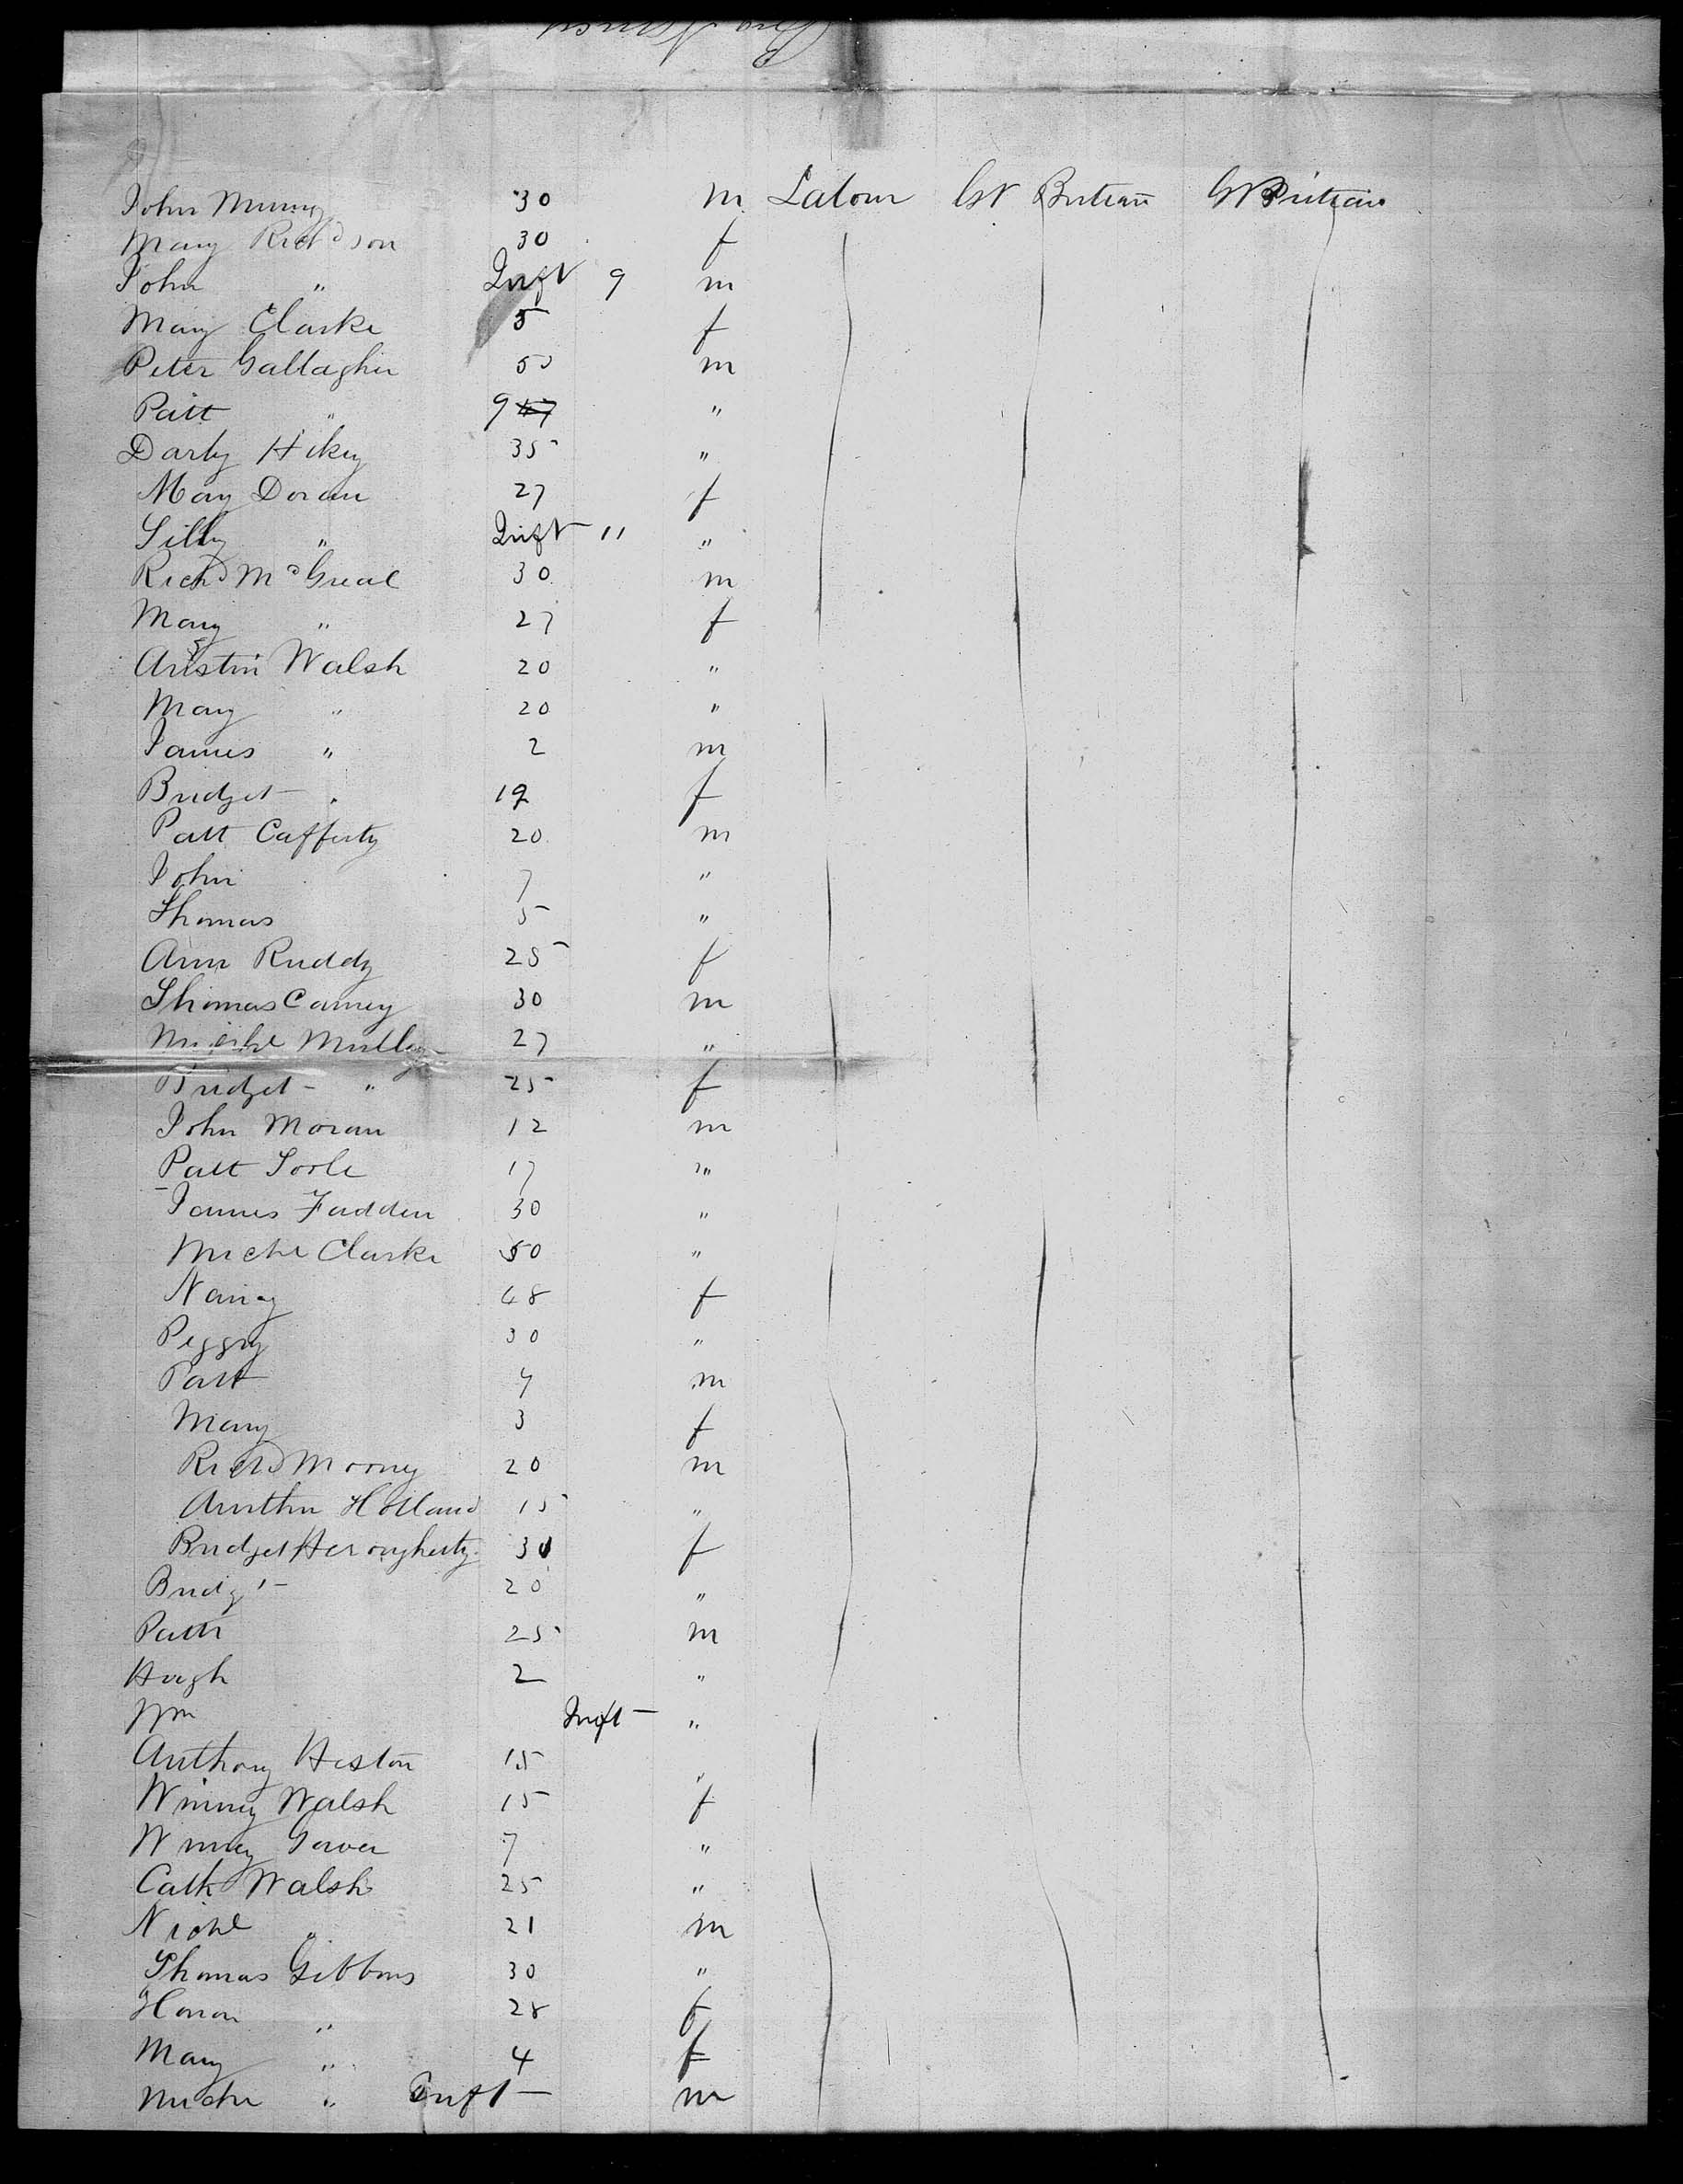 John Murray 30 m Labour Gt Britain Gt Britain
Mary Richdson 30 f
John " Inft 9 m
Mary Clarke 5 f
Peter Gallagher 50 m
Patt " 9 "
Darby Hikey 35 "
Mary Doran 27 f
Silly " Inft " "
Richd McGreal 30 m
Mary " 27 f
Austin Walsh 20 "
Mary " 20 "
James " 2 m
Bridget " 19 f
Patt Cafferty 20 m
John 7 "
Thomas 5 "
Ann Ruddy 25 f
Thomas Carney 30 m
Michl Mulloy 27 "
Bridget " 25 f
John Moran 12 m
Patt Toole 17 "
James Fadden 30 "
Michl Clarke 50 "
Nancy 48 f
Peggy 30 "
Patt 4 m
Mary 3 f
Richd Mooney 20 m
Holland 15 "
Bridget Herougherty 30 f
Bridgt 20 "
Patt 25 m
Hugh 2 "
Wm Inft "
Anthony Heston 15 "
Winney Walsh 15 f
Winney 7 "
Cath Walsh 25 "
Michl " 21 m
Thomas Gibbons 30 "
Honor " 28 f
Mary " 4 f
Michl " Inft m